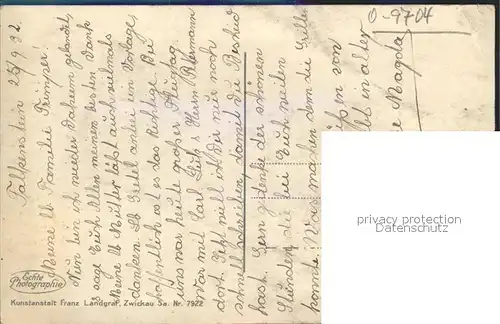 Falkenstein 25/9 32
Meine lb Familie Trimper!
Nun bin ich wieder daheim gelandet,
sage Euch Allen meinen besten Dank
Meine lb Mutter läßt auch vielmals
danken. Lb Gretel anbei ein Vorlage,
hoffentlich ist es das Richtige. Bei
uns war heute großer Flugtag.
War mit Carl Lutz u Herrn
dort. Jetzt will ich Dir nur noch
schnell schreiben, damit Du Bescheid
hast. Gern gedenke der schönen
Stunden die bei Euch weilen
konnte! Was machen denn die
von
in alter
Magda
O-9704
Echte
Photographie
Kunstanstalt Franz Landgraf, Zwickau Sa. Nr. 7922
privacy protection
DataGuard